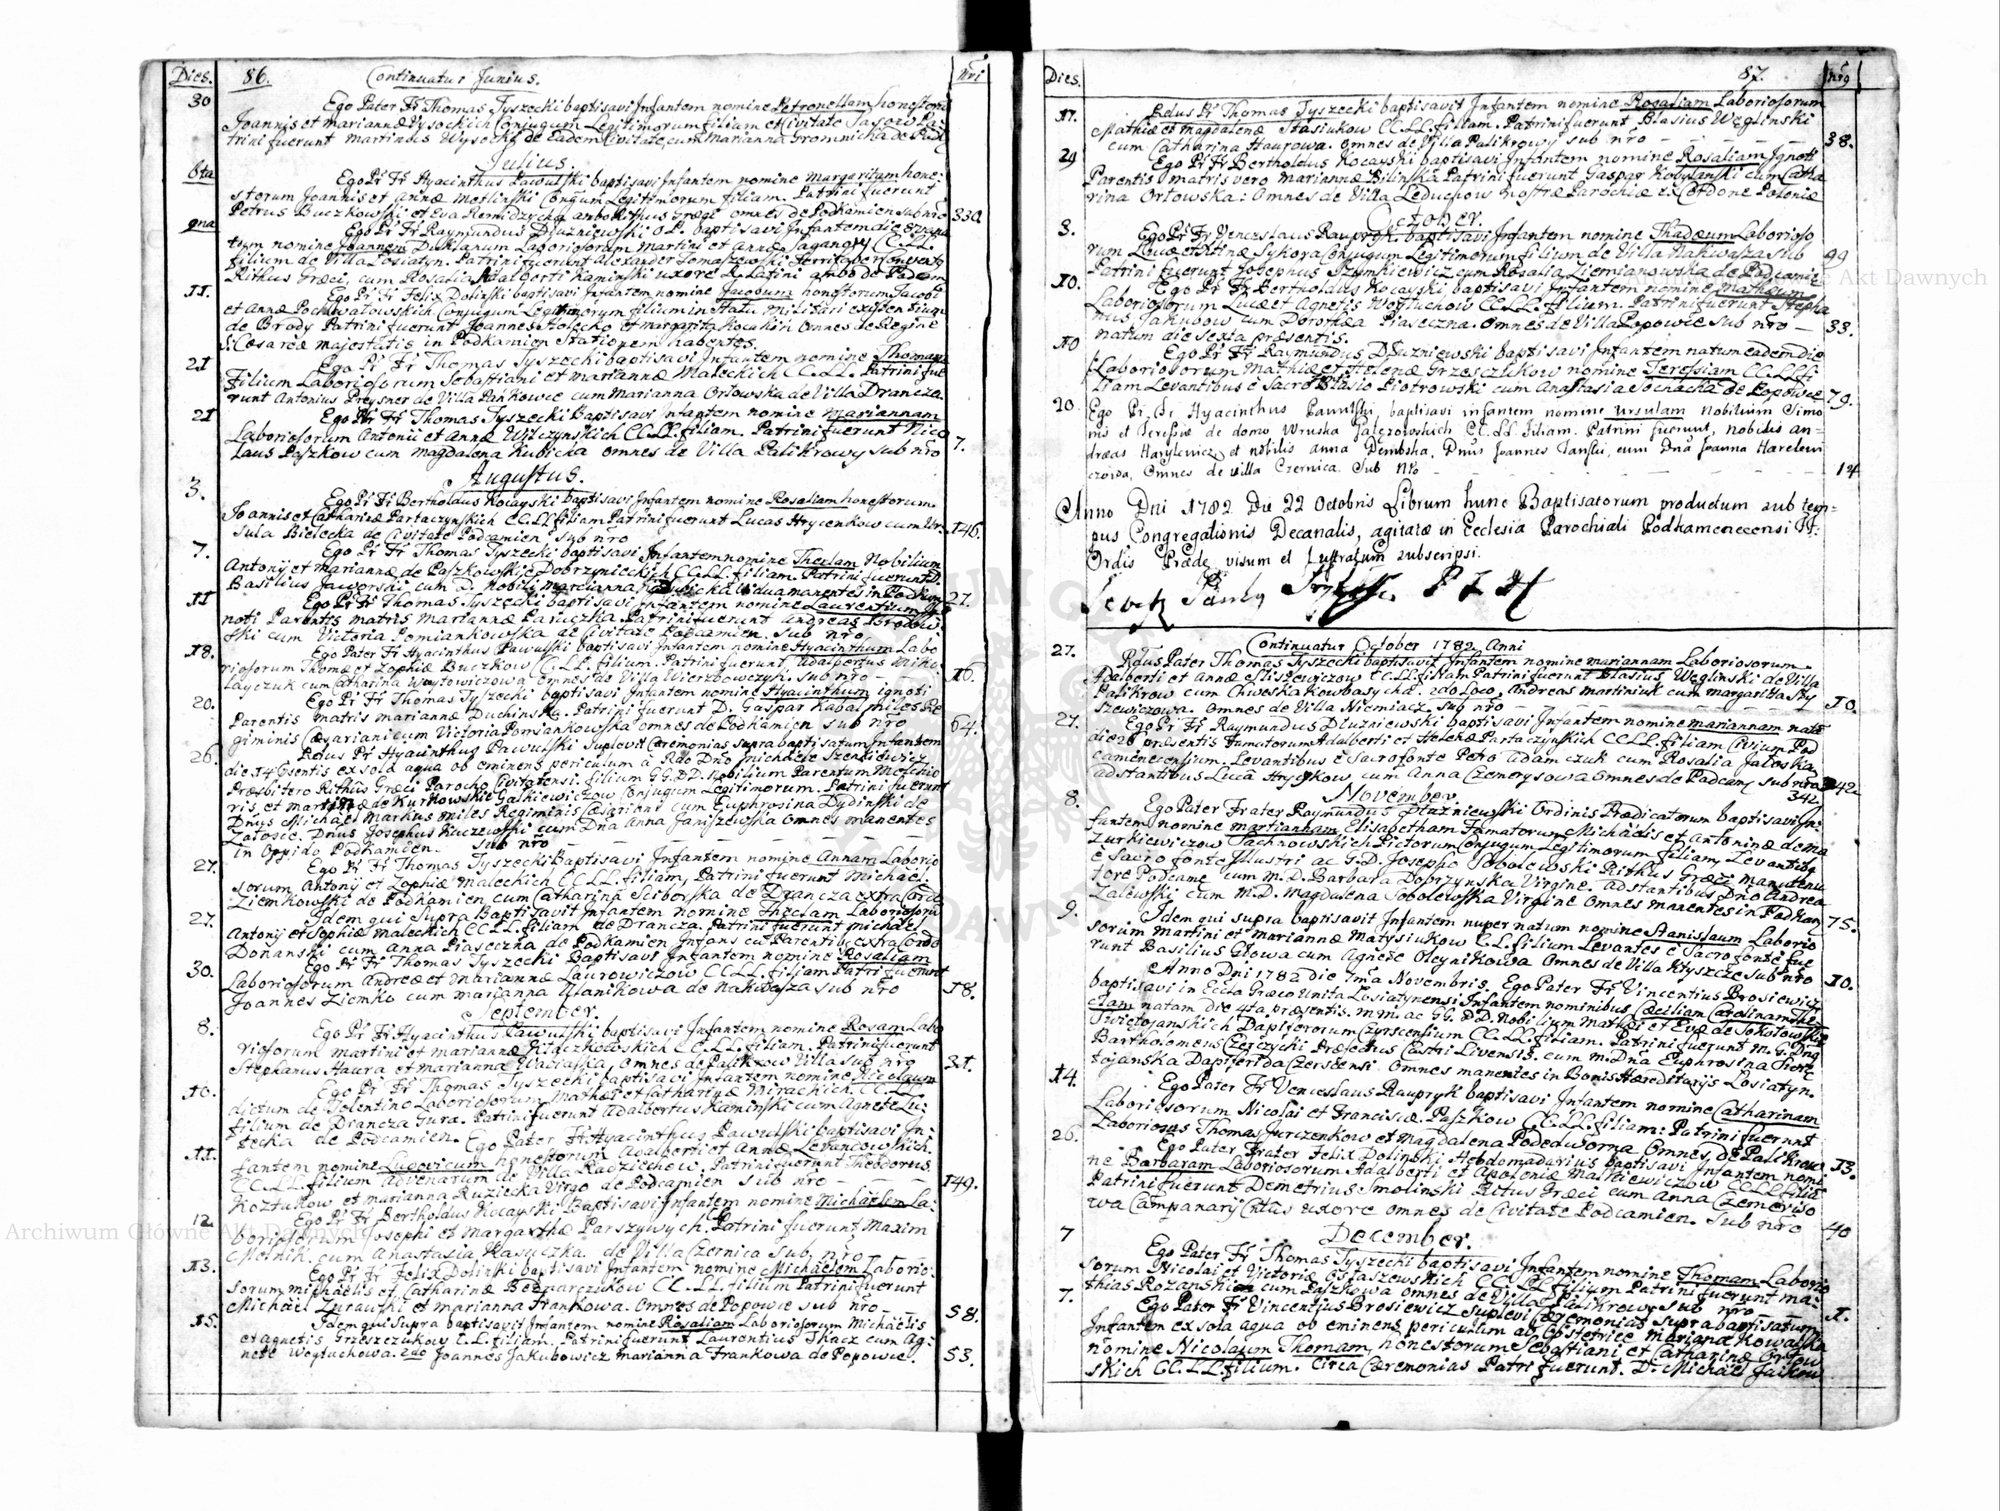 Dies.
86.
Continuatur Junius.
Nri
30
Ego Pater Fr Thomas Tyszecki baptisavi Infantem nomine Petronellam honestorū
Joannis et Mariannæ Wysockich Conjugum Legitimorum filiam
trini fuerunt Martinus Wysocki de eadem Civitate, cum Marianna Gromnicka de
Julius.
6ta
Ego Pr Fr Hyacinthus Pawulski baptisavi Infantem nomine Margaritam hone-
storum Joannis et Annæ Metlinski Conjugum Legitimorum filiam. Patrini fuerunt
Petrus Buczkowski et Eva ambo Rithus Græci omnes de Podkamien sub nro
330.
9na
Ego Pr Fr Raymundus Dłużniewski O.P. baptisavi Infantem die
tum nomine Joannem Duklanum Laboriosorum Martini et Annæ C.C.L.L.
filium de Villa Losiatyn. Patrini fuerunt Alexander Tomaszewski
Rithus Græci, cum Rosalia Adalberti Kaminski uxore R. Latini ambo de Podcam
11.
Ego Pr Fr Felix Dolinski baptisavi Infantem nomine Jacobum honestorum Jacobi
et Annæ Pochwatowskich Conjugum Legitimorum filium in Statu Militari
de Brody Patrini fuerunt Joannes Holecko et Margarita Omnes de Regine
S. Cæsareæ Majestatis in Podkamien Stationem habentes.
21
Ego Pr Fr Thomas Tyszecki baptisavi Infantem nomine Thomam
filium Laboriosorum Sebastiani et Mariannæ Maleckich CC. LL. Patrini fue
runt Antonius Preysner de Villa Pankowce cum Marianna Orłowska de Villa Drancza.
21
Ego Pr Fr Thomas Tyszecki Baptisavi Infantem nomine Mariannam
Laboriosorum Antonii et Annæ Wilczynskich CC.LL. filiam. Patrini fuerunt Nico
laus Paszkow cum Magdalena Kubicka omnes de Villa Palikrowy sub nro
7.
Augustus.
3.
Ego Pr Fr Bertholdus Kocayski baptisavi Infantem nomine Rosaliam honestorum
Joannis et Catharinæ Partaczynskich CC.LL filiam Patrini fuerunt Lucas Hrycenkow cum Ur-
sula Bielecka de Civitate Podcamien sub nro
146.
7.
Ego Pr Fr Thomas Tyszecki baptisavi Infantem nomine Theclam Nobilium
Antonij et Mariannæ de Paszkowskie Dobrzynieckich CC.LL. filiam. Patrini fuerunt D.
Basilius Jaworski cum D. Nobili Marcianna Vidua manentes in Podkam
27.
11
Ego Pr Fr Thomas Tyszecki baptisavi Infantem nomine Laurentium Ig
noti Parentis matris Mariannæ Paruczka. Patrini fuerunt Andreas Brodow-
ski cum Victoria Pomiankowska de Civitate Podcamien. sub nro
18.
Ego Pater Fr Hyacinthus Pawulski baptisavi Infantem nomine Hyacinthum Labo
riosorum Thomæ et Zophiæ Buczkow CC.LL. filium. Patrini fuerunt, Adalbertus Miko-
layczuk cum Catharina Woytowiczowa omnes de Villa Wierzbowczyk. sub nro
16.
20.
Ego Pr Fr Thomas Tyszecki baptisavi Infantem nomine Hyacinthum ignoti
Parentis matris Mariannæ Duchinska. Patrini fuerunt D. Gaspar Kabal miles Re
giminis Cæsariani cum Victoria Pomiankowska omnes de Podkamien sub nro
64.
26.
Rdus Pr Hyacinthus Pawulski Suplevit Ceremonias supra baptisatum Infantem
die 14 Psentis ex sola aqua ob eminens periculum a Rdo Dno Michaele Szenkiewicz
Præsbitero Rithus Græci Parocho Civitatensi. filium GG.DD. Nobilium Parentum Melchio
ris et Martinæ de Kurkowskie Galkiewiczow Conjugum Legitimorum. Patrini fuerunt
Dnus Michael Markus miles Regiminis Cæsariani cum Euphrosina Dydinski de
Załosce. Dnus Josephus Kuczewski cum Dna Anna Janiszewska omnes manentes
in Oppido Podkamien. sub nro
27.
Ego Pr Fr Thomas Tyszecki Baptisavi Infantem nomine Annam Laborio
sorum Antonij et Zophiæ Maleckich CC.LL filiam, Patrini fuerunt Michael
Ziemkowski de Podkamien, cum Catharina Sciborska de Drancza extra Corde
27.
Idem qui Supra Baptisavit Infantem nomine Theclam Laboriosorū
Antonij et Sophiæ Maleckich CC.LL filiam de Drancza. Patrini fuerunt Michael
Donanski cum Anna Piaseczna de Podkamien Infans cū Parentib, extra Cord
30.
Ego Pr Fr Thomas Tyszecki Baptisavi Infantem nomine Rosaliam
Laboriosorum Andreæ et Mariannæ Laurowiczow CC.LL. filiam Patri fuerunt
Joannes Ziemko cum Marianna Ulanikowa de Nakwasza sub nro
18.
September.
8.
Ego Pr Fr Hyacinthus Pawulski baptisavi Infantem nomine Rosam Labo
riosorum Martini et Mariannæ CC.LL. filiam. Patrini fuerunt
Stephanus Haura et Marianna Omnes de Palikrow Villa sub nro
31.
10.
Ego Pr Fr Thomas Tyszecki baptisavi Infantem nomine Nicolaum
dictum de Tolentino Laboriosorum Mathæi et Catharinæ Mirackich. CC.LL.
filium de Drancza Gura. Patrini fuerunt Adalbertus Kaminski cum Agnete Lu-
tecka de Podcamien.
11.
Ego Pater Fr Hyacinthus Pawulski baptisavi In-
fantem nomine Ludovicum honestorum Adalberti et Annæ Lewandowskich
CC.LL. filium advenarum de Villa Radziechow. Patrini fuerunt Theodorus
Kozłukow et Marianna Ruziecka Virgo de Podcamien sub nro
149.
12
Ego Pr Fr Bertholdus Kocayski Baptisavi Infantem nomine Michaelem La-
boriosorum Josephi et Margarthæ Parszywych. Patrini fuerunt Maxim
Mielnik. cum Anastasia Kasuczka. de Villa Czernica sub nro
13.
Ego Pr Fr Felix Dolinski baptisavi Infantem nomine Michaelem Laborio-
sorum Michaelis et Catharinæ Bednarczukow CC.LL. filium Patrini fuerunt
Michael Zurawski et Marianna Frankowa. Omnes de Popowce sub nro
58.
15.
Idem qui Supra baptisavit Infantem nomine Rosaliam Laboriosorum Michaelis
et Agnetis Grzeszczukow CC.LL. filiam. Patrini fuerunt Laurentius Tkacz cum Ag-
nete Woytuchowa. 2do Joannes Jakubowicz Marianna Frankowa de Popowce.
53.
Dies.
87.
Nro
17.
Rdus Pr Thomas Tyszecki baptisavit Infantem nomine Rosaliam Laboriosorum
Mathiæ et Magdalenæ Stasiukow CC.LL. filiam. Patrini fuerunt Blasius Weglinski
cum Catharina Haurowa. Omnes de Villa Palikrowy sub nro
38.
29
Ego Pr Fr Bertholdus Kocayski baptisavi Infantem nomine Rosaliam Ignoti
Parentis Matris vero Mariannæ Bilinska Patrini fuerunt Gaspar Kobylanski cum Catha
rina Orłowska: Omnes de Villa Leduchow Nostræ Parochiæ ex Cordone Poloniæ
October.
3.
Ego Pr Fr Venceslaus Raupryk baptisavi Infantem nomine Thadæum Laborioso
rum Lucæ et Sykora Conjugum Legitimorum filium de Villa Nakwasza sub
99
Patrini fuerunt Josephus Szymkiewicz cum Rosalia Ziemianowska de Podcamie
10.
Ego Pr Fr Bertholdus Kocayski baptisavi Infantem nomine Mathæum
Laboriosorum Lucæ et Agnetis Woytuchow CC.LL. filium. Patrini fuerunt Stepha
nus Jakubow cum Dorothea Piaseczna. Omnes de Villa Popowce sub nro
33.
natum die sexta præsentis.
10
Ego Pr Fr Raymundus Dłużniewski Baptisavi Infantem natum eadem die
Laboriosorum Mathiæ et Helenæ Grzeszczukow nomine Teressiam CC.LL fi
liam Levantibus e Sacro Blasio Piotrowski cum Anastasia Sochacka de Popowce
79.
20.
Ego Pr Fr Hyacinthus Pawulski, baptisavi infantem nomine Ursulam Nobilium Simo
nis et Teressiæ de domo Wruska CC. LL filiam. Patrini fuerunt, nobilis an-
dræas Harylewicz et nobilis anna Dembska, Dnus Joannes Janski, cum Dna Joanna
Omnes de villa Czernica. Sub Nro
14
Anno Dni 1782 Die 22 Octobris Librum hunc Baptisatorum productum sub tem-
pus Congregationis Decanalis, agitatæ in Ecclesia Parochiali Podkamenecensi
Ordis Præde visum et Lustratum subscripsi.
Continuatur October 1782 Anni
27.
Rdus Pater Thomas Tyszecki baptisavit Infantem nomine Mariannam Laboriosorum
Adalberti et Annæ CC.LL filiam Patrini fuerunt Blasius Weglinski de Villa
Palikrow cum Chweska Kowbasycha. 2do Loco, Andreas Martiniuk cum Margarita Sty
szewiczowa. Omnes de Villa Niemiacz. sub nro
10.
27.
Ego Pr Fr Raymundus Dłużniewski baptisavi Infantem nomine Mariannam nată
die 26 præsentis Famatorum Adalberti et Helenæ Partaczynskich CC.LL. filiam Civium Pod
camenecensium. Levantibus e Sacro fonte Petro Adamczuk cum Rosalia Jatoska,
adstantibus Luca Hrycykow cum Anna Czemerysowa Omnes de Podcam sub nro
342
342.
November
8.
Ego Pater Frater Raymundus Dłużniewski Ordinis Prædicatorum baptisavi In-
fantem nomine Martianham, Elisabetham Famatorum Michaelis et Antoninæ de Ma
zurkiewiczow Tachnowskich Pictorum Conjugum Legitimorum filiam, Levantibg
e Sacro fonte Illustri ac G.D. Josepho Sobolewski Rithus Græci Mandatu
tore Podcame cum M.D. Barbara Dobrzynska Virgine. adstantibus Dno Andrea
Zalewski cum M.D. Magdalena Sobolewska Virgine Omnes manentes in Podkam
75.
9.
Idem qui supra baptisavit Infantem nuper natum nomine Stanislaum Laborio
sorum Martini et Mariannæ Matysiukow CC.LL filium Levantes e Sacro fonte fue
runt Basilius Głowa cum Agnete Oleynikowa Omnes de Villa Hłyszcze sub nro
10.
Anno Dni 1782 die 7ma Novembris. Ego Pater Fr Vincentius Brosiewicz
baptisavi in Eccla Græco Unita Losiatynensi Infantem nominibus Cæciliam Carolinam The-
clam natam die 4ta præsentis. MM. ac GG. DD. Nobilium Mathæi et Evæ de Sokołowskie
Swiętojanskich Dapiferorum Czyrscensium CC.LL. filiam. Patrini fuerunt M.G. Dnus
Bartholomeus Czerczycki Præfectus Castri Livensis. cum M. Dna Euphrosina Swię
tojanska Dapiferida Czerscensi Omnes manentes in Bonis Hæreditarijs Losiatyn.
14.
Ego Pater Fr Venceslaus Raupryk baptisavi Infantem nomine Catharinam
Laboriosorum Nicolai et Franciscæ. Paszkow CC.LL filiam: Patrini fuerunt
Laboriosus Thomas Jurczenkow et Magdalena Podedworna Omnes, de Palikrow
13.
26.
Ego Pater Frater Felix Dolinski: Hebdomadarius baptisavi Infantem nomi
ne Barbaram Laboriosorum. Adalberti et Apoloniæ Matheiewiczow CC.LL. filia
Patrini fuerunt Demetrius Smolinski Ritus Græci cum Anna Czemeriso
wa Campanarij uxore omnes de Civitate Podcamien. Sub nro
40
December.
7
Ego Pater Fr Thomas Tyszecki baptisavi Infantem nomine Thomam Laborio
sorum Nicolai et Victoriæ Ostaszewskich CC.LL filium Patrini fuerunt Ma-
thias Rozanski cum Paszkowa omnes de Villa Palikrowy sub nro
1.
7.
Ego Pater Fr Vincentius Brosiewicz suplevi Ceremonias Supra baptisatum
Infantem ex sola aqua ob eminens periculum ab Obstetrice Mariana Kowalska
nomine Nicolaum Thomam, honestorum Sebastiani et Catharinæ Orłow
skich CC.LL. filium. Circa Cæremonias Patri fuerunt. D. Michael Jackow
Archiwum Główne Akt Dawnych
Archiwum Główne Akt Dawnych